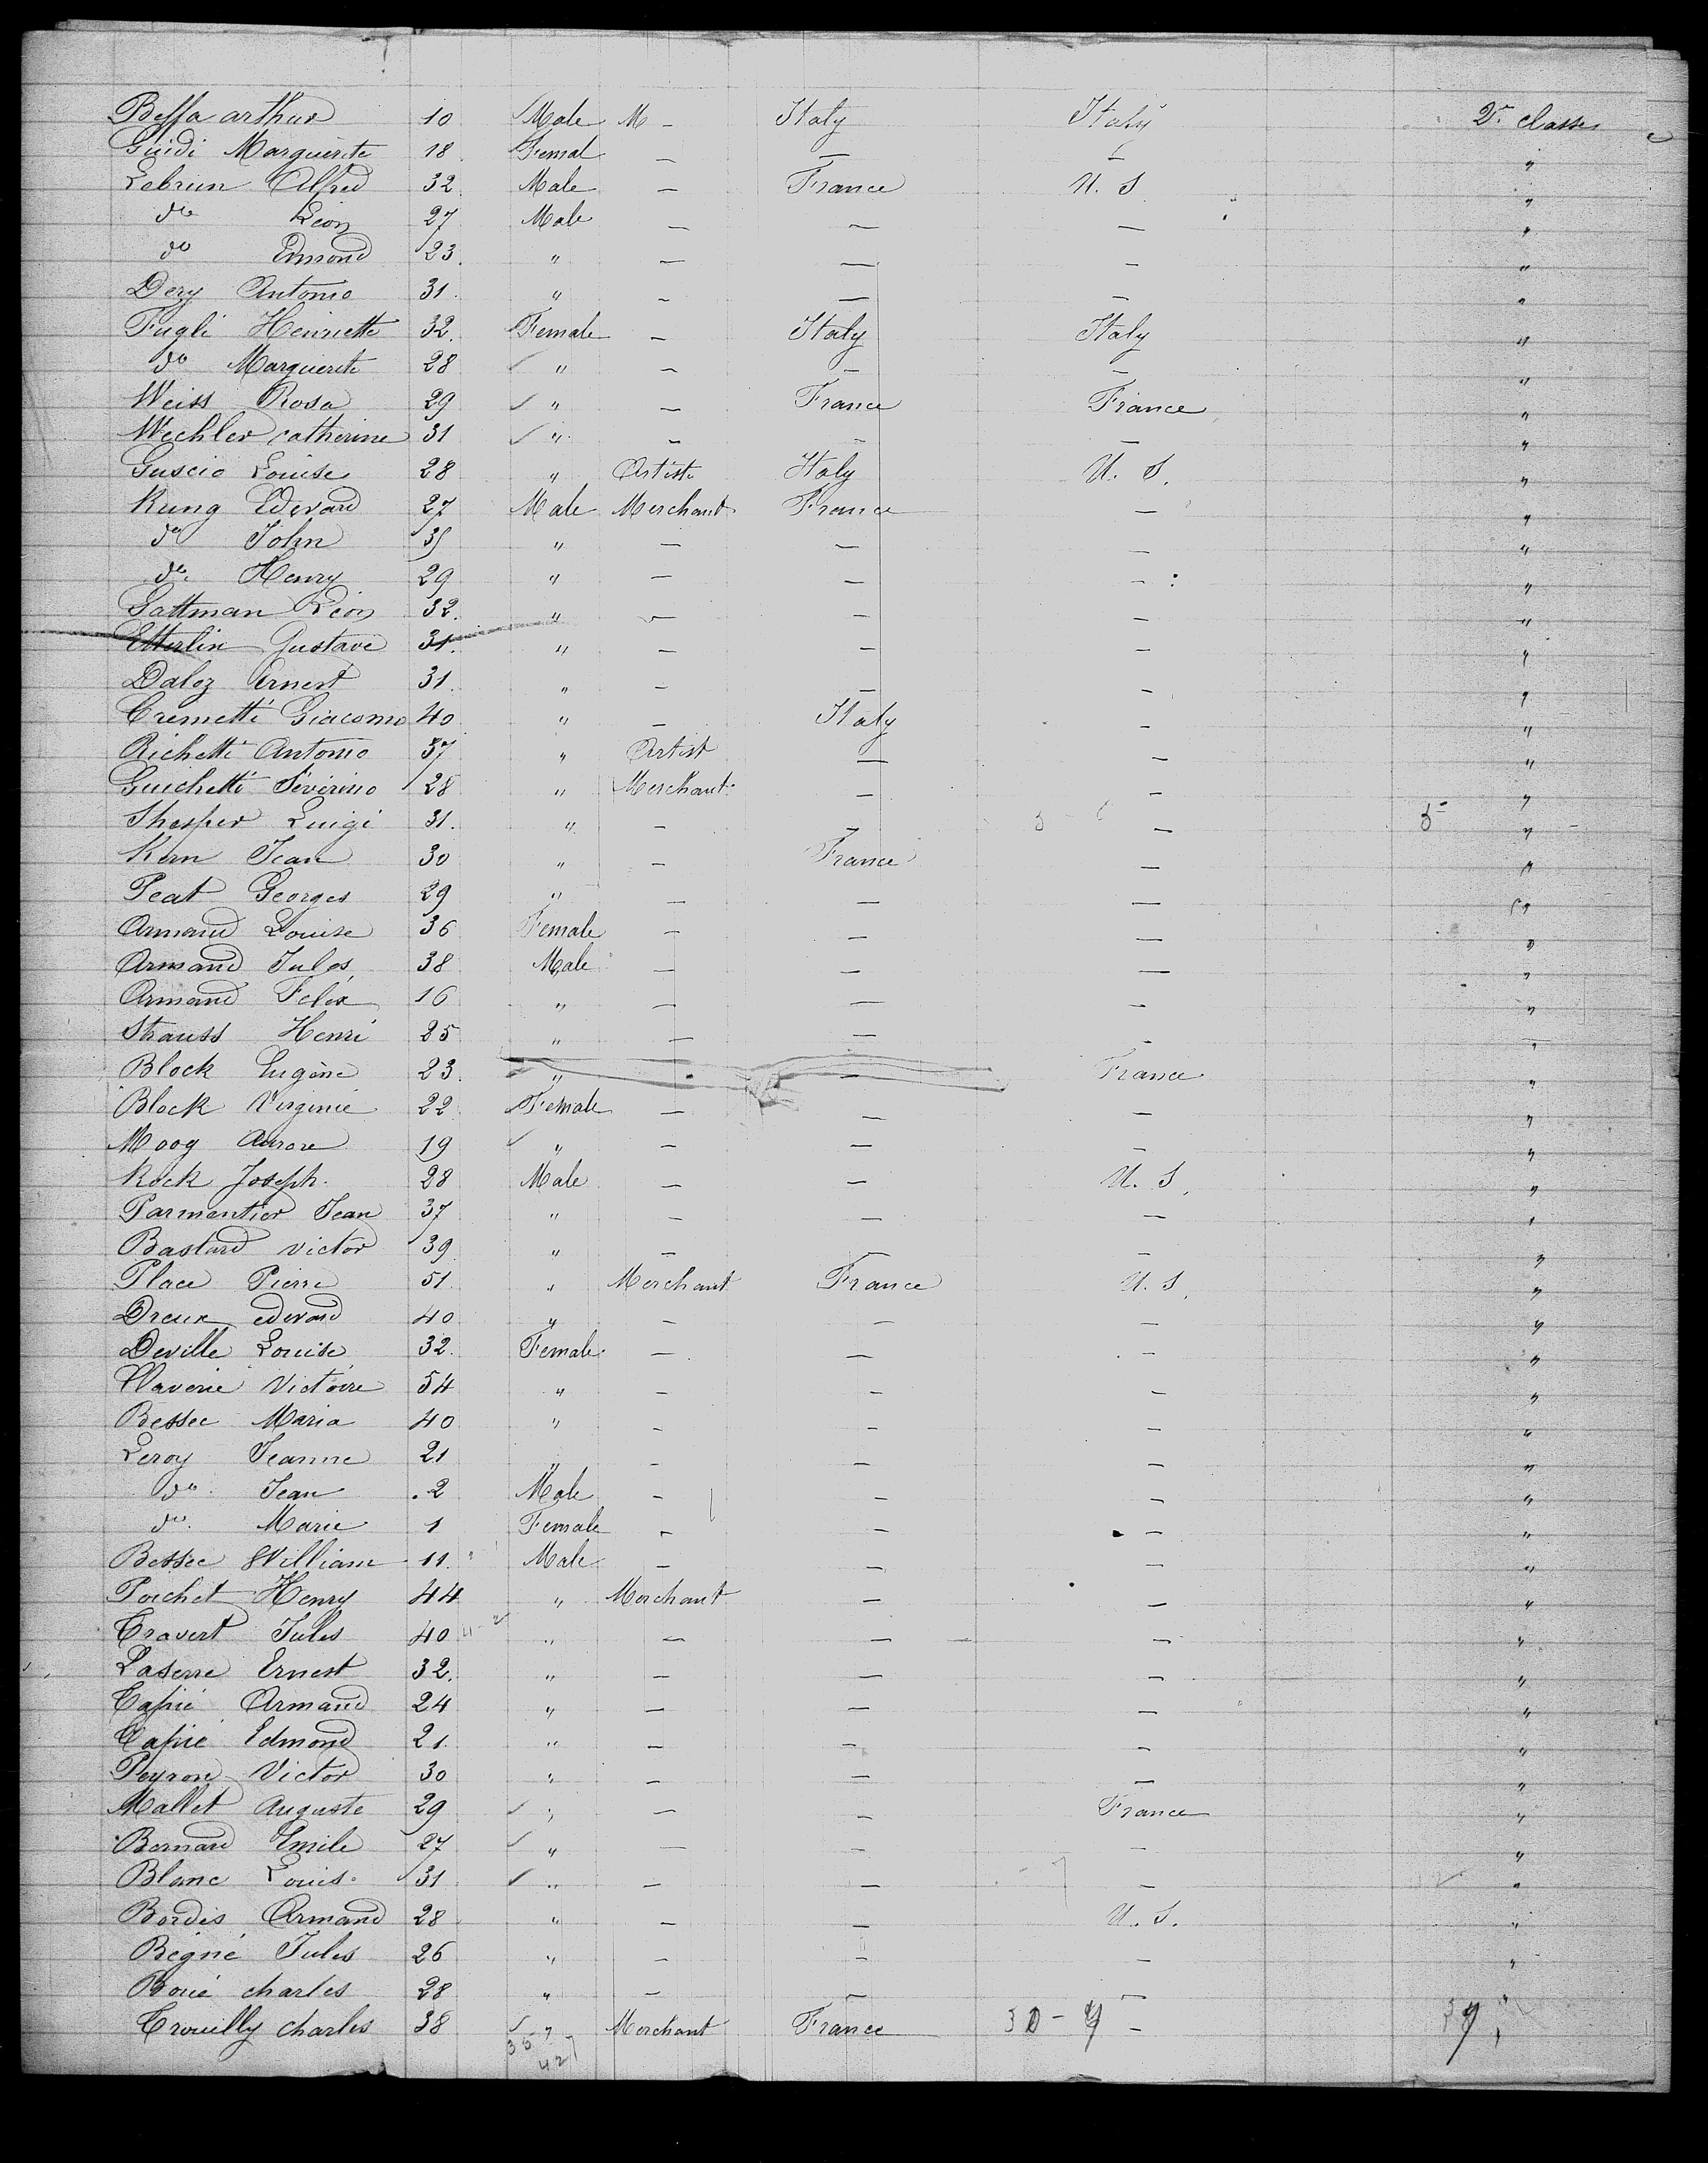 Beffa arthur 10 Male M - Italy Italy 2e classe
Guidi Marguerite 18 Femal - - - "
Lebrun Alfred 32 Male - France U. S "
do Léon 27 Male - - - "
do Edmond 23 " - - - "
Dery Antonio 31 " - - - "
Fugli Henriette 32 Female - Italy Italy "
do Marguerite 28 " - - - "
Weiss Rosa 29 " - France France "
Wechler catherine 31 " - - - "
Guscio Louise 28 " Artiste Italy U. S. "
Kung Edward 27 Male Merchant France - "
do John 35 " - - - "
do Henry 29 " - - - "
Gattman Léon 32 " - - - "
Etterlin Gustave 31 " - - - "
Daloz Ernest 31 " - - - "
Cremetti Giacomo 40 " - Italy - "
Richetti Antonio 37 " Artist - - "
Guichetti Séverino 28 " Merchant - - "
Luigi 31 " - - - "
Kern Jean 30 " - France - "
Peat Georges 29 " - - - "
Armand Louise 36 Female - - - "
Armand Jules 38 Male - - - "
Armand Felix 16 " - - - "
Strauss Henri 25 " - - - "
Block Eugène 23 " - - France "
Block Virginie 22 Female - - - "
Moog Aurore 19 " - - - "
Rock Joseph 28 Male - - U. S. "
Parmentier Jean 37 " - - - "
Bastard victor 39 " - - - "
Place Pierre 51 " Merchant France U. S. "
Dreux edward 40 " - - - "
Deville Louise 32 Female - - - "
Claverie Victoire 54 " - - - "
Bessec Maria 40 " - - - "
Leroy Jeanne 21 " - - - "
do Jean 2 Male - - - "
do Marie 1 Female - - - "
Bessec William 11 Male - - - "
Porchet Henry 44 " Merchant - - "
Travert Jules 40 " - - - "
Laserre Ernest 32 " - - - "
Capié Armand 24 " - - - "
Capié Edmond 21 " - - - "
Peyron Victor 30 " - - - "
Mallet Auguste 29 " - - France "
Bernard Emile 27 " - - - "
Blanc Louis 31 " - - - "
Bordis Armand 28 " - - U. S. "
Bégné Jules 26 " - - - "
Boué charles 28 " - - - "
Crouilly charles 38 " Merchant France - "